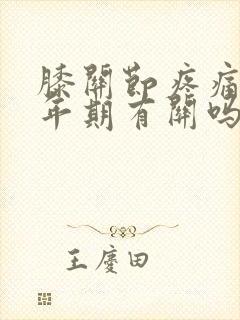 膝關節疼痛
年期有關嗎
王慶田